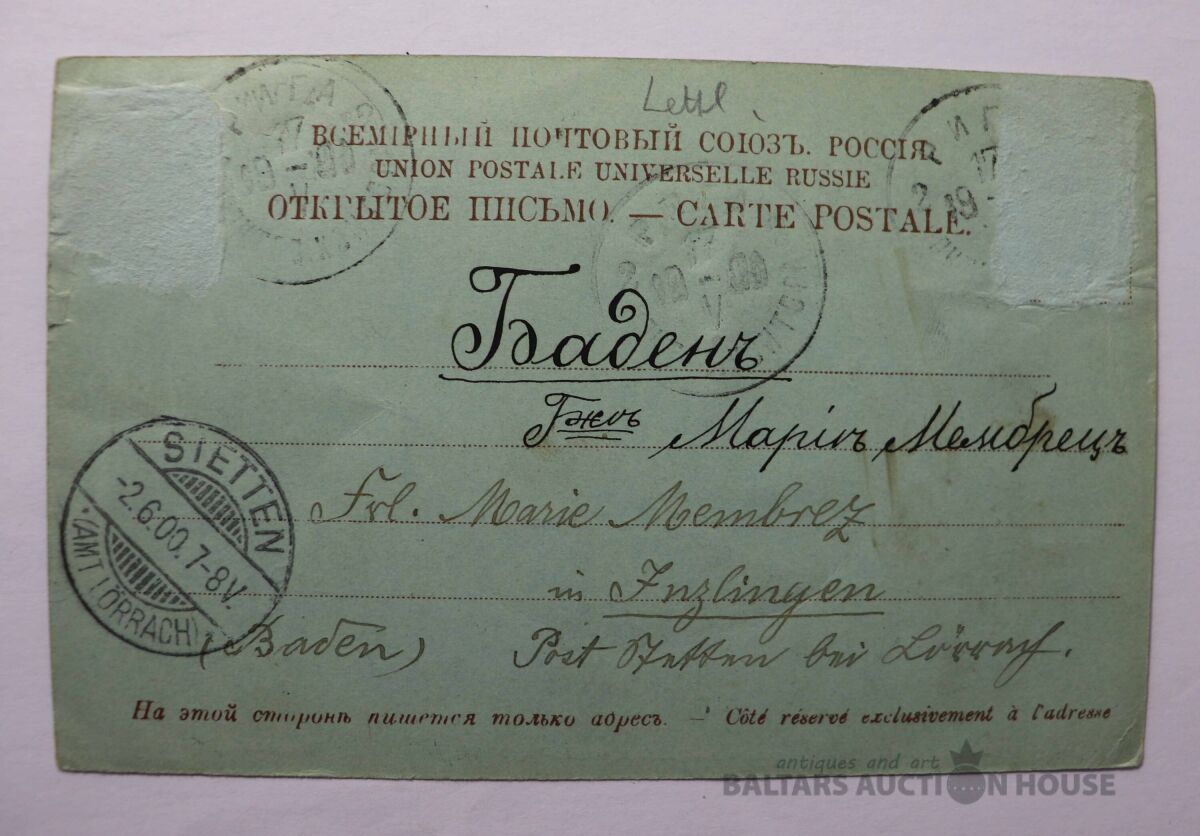 Lettl.
ВСЕМІРНЫЙ ПОЧТОВЫЙ СОЮЗЪ. РОССІЯ.
UNION POSTALE UNIVERSELLE RUSSIE
ОТКРЫТОЕ ПИСЬМО. — CARTE POSTALE.
РИГА
17
19 – 00
V
РИГ
17
2 19
2 19 – 00
V
Баденъ
Гжѣ Маріѣ Мембрецъ
Frl. Marie Membrez
in Inzlingen
(Baden) Post Stetten bei Lörrach.
STETTEN
-2.6.00.7-8V.
(AMT LÖRRACH)
На этой сторонѣ пишется только адресъ. — Côté réservé exclusivement à l'adresse
antiques and art
BALTARS AUCTION HOUSE